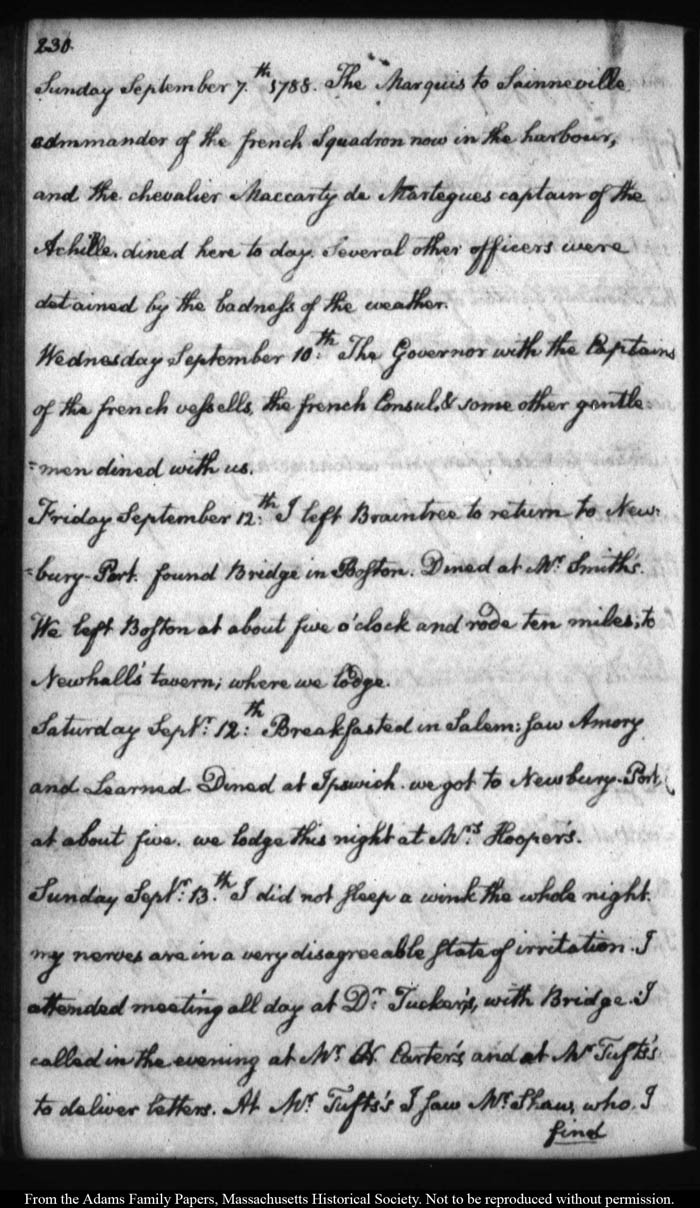 230.
Sunday September 7.th 1788. The Marquis to Sainneville
commander of the french Squadron now in the harbour,
and the chevalier Maccarty de Martegues captain of the
Achille. dined here to day. Several other officers were
detained by the badness of the weather.
Wednesday September 10:th The Governor with the Captains
of the french vessells, the french Consul, & some other gentle
=men dined with us.
Friday September 12:th I left Braintree to return to New=
=bury-Port. found Bridge in Boston. Dined at Mr. Smith's.
We left Boston at about five o'clock and rode ten miles; to
Newhall's tavern; where we lodge.
Saturday Septr. 12:th Breakfasted in Salem: saw Amory
and Learned. Dined at Ipswich. we got to Newbury-Port
at about five. we lodge this night at Mrs. Hooper's.
Sunday Septr. 13.th I did not sleep a wink the whole night.
my nerves are in a very disagreeable state of irritation. I
attended meeting all day at Dr. Tucker's, with Bridge. I
called in the evening at Mr. N. Carter's, and at Mr Tufts's
to deliver letters. At Mr. Tufts's I saw Mr. Shaw, who I
find
From the Adams Family Papers, Massachusetts Historical Society. Not to be reproduced without permission.